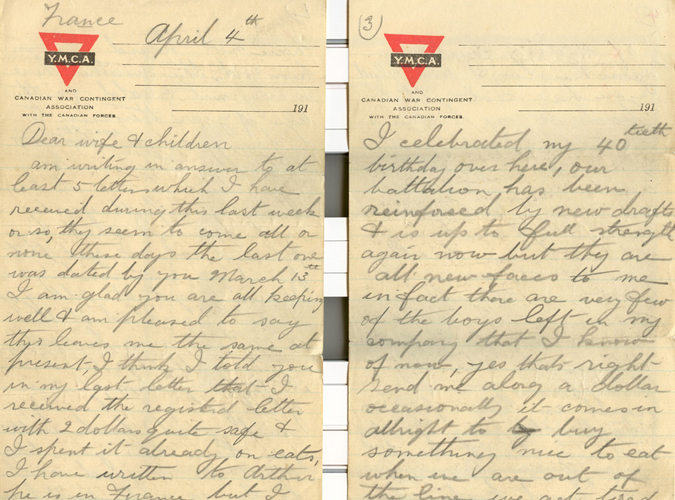 France
April 4th
Y.M.C.A.
AND
CANADIAN WAR CONTINGENT
ASSOCIATION
WITH THE CANADIAN FORCES
191
Dear wife & children
am writing in answer to at
least 5 letters which I have
received during this last week
or so, they seem to come all or
none these days the last one
was dated by you March 13th
I am glad you are all keeping
well & am pleased to say
this leaves me the same at
present, I think I told you
in my last letter that I
received the registerd letter
with 2 dollars quite safe &
I spent it already on eats,
I have written to Arthur
he is in France but I
(3)
Y.M.C.A.
AND
CANADIAN WAR CONTINGENT
ASSOCIATION
WITH THE CANADIAN FORCES
191
I celebrated my 40tieth
birthday over here, our
battalion has been
reinforced by new drafts
& is up to full strength
again now but they are
all new faces to me
in fact there are very few
of the boys left in my
company that I know
of now, yes thats right
send me along a dollar
occasionally it comes in
allright to buy
something nice to eat
when we are out of
the line we get